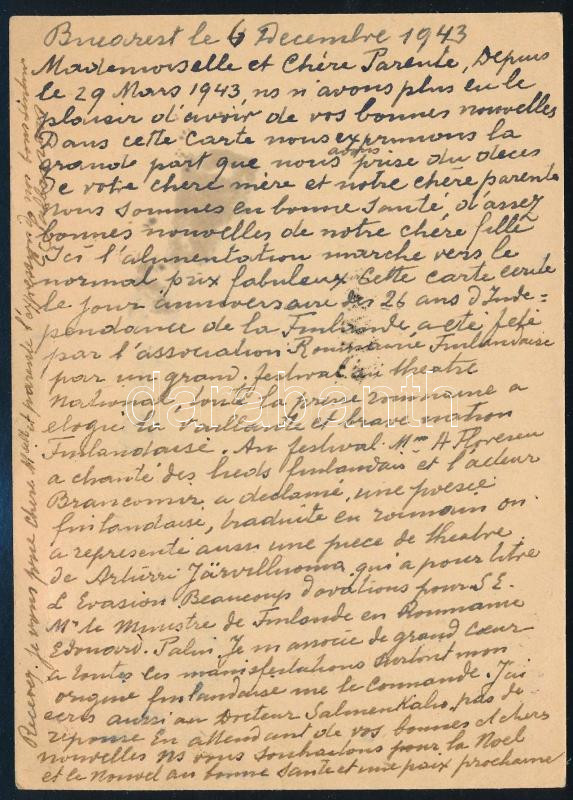 Bucarest le 6 Decembre 1943
Mademoiselle et Chère Parente, Depuis
le 29 Mars 1943 ns n'avons plus eu le
plaisir d'avoir de vos bonnes nouvelles
Dans cette carte nous exprimons la
grande part que nous avons prise du deces
de votre chere mère et notre chère parente
nous sommes en bonne santé d'assez
bonnes nouvelles de notre chère fille
Ici l'alimentation marche vers le
normal prix fabuleux Cette carte ecrite
le jour anniversaire des 26 ans d'Inde=
pendance de la Finlande a eté feté
par l'association Roumanie Finlandaise
par un grand festival au theatre
National toute la presse roumaine a
elogié la vaillante et brave nation
Finlandaise. Au festival Mme H Florescu
a chanté des lieds finlandais et l'acteur
Brancomir a declamé une poesie
finlandaise, traduite en roumain on
a representé aussi une piece de theatre
de Artürri Järvilluoma qui a pour titre
L Evasion Beaucoup d'ovations pour S E.
Mr le Ministre de Finlande en Roumanie
Edouard. Palin. Je m'associe de grand cœur
a toutes ces manifestations surtout mon
origine finlandaise me le comande. J'ai
ecris aussi au Docteur Salmenkalio, pas de
réponse En attendant de vos bonnes et cheres
nouvelles ns vous souhaitons pour la Noel
et le Nouvel an bonne sante et une paix prochaine
Recevez je vous prie chère et parente l'expression de nos bons
darabanth